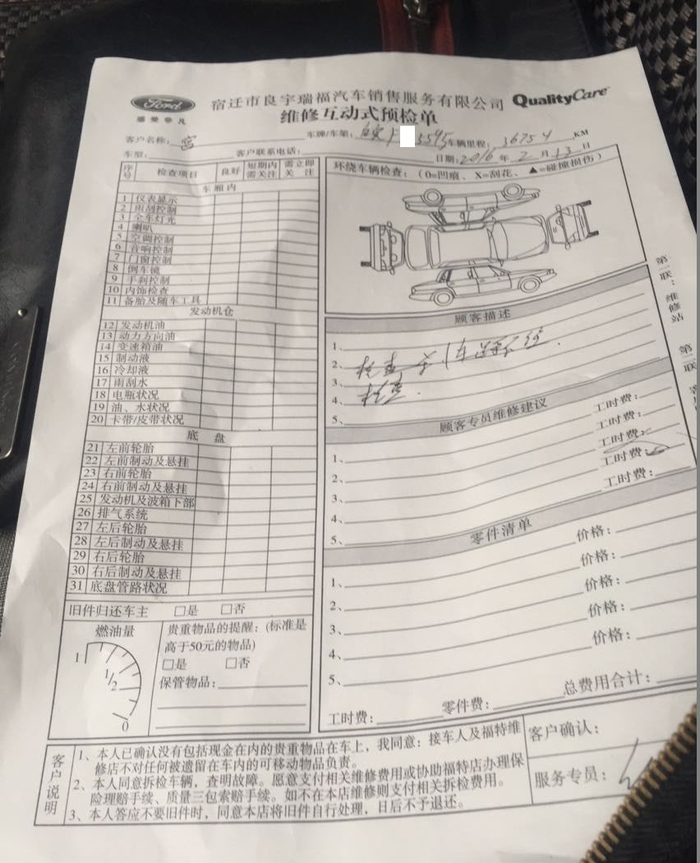 Ford
宿迁市良宇瑞福汽车销售服务有限公司
QualityCare
维修互动式预检单
客户名称：
车牌/车架：
5595
车辆里程：36754 KM
车型：
客户联系电话：
日期：2016 年 2 月 13 日
序号 检查项目 良好 短期内需关注 需立即关注
车厢内
1 仪表显示
2 雨刮控制
3 全车灯光
4 喇叭
5 空调控制
6 音响控制
7 门窗控制
8 倒车镜
9 手刹控制
10 内饰检查
11 备胎及随车工具
发动机仓
12 发动机油
13 动力方向油
14 变速箱油
15 制动液
16 冷却液
17 雨刮水
18 电瓶状况
19 油、水状况
20 卡带/皮带状况
底 盘
21 左前轮胎
22 左前制动及悬挂
23 右前轮胎
24 右前制动及悬挂
25 发动机及波箱下部
26 排气系统
27 左后轮胎
28 左后制动及悬挂
29 右后轮胎
30 右后制动及悬挂
31 底盘管路状况
旧件归还车主 □是 □否
燃油量
1
1/2
0
贵重物品的提醒：(标准是
高于50元的物品)
□是 □否
保管物品：
环绕车辆检查：（0=凹痕、X=刮花、▲=碰撞损伤）
顾客描述
1、
2、检查
3、
4、检查
5、
顾客专员维修建议
1、 工时费：
2、 工时费：
3、 工时费：
4、 工时费：
5、 工时费：
零件清单
1、 价格：
2、 价格：
3、 价格：
4、 价格：
5、 价格：
工时费： 零件费： 总费用合计：
客户说明
1、本人已确认没有包括现金在内的贵重物品在车上，我同意：接车人及福特维
修店不对任何被遗留在车内的可移动物品负责。
2、本人同意拆检车辆，查明故障。愿意支付相关维修费用或协助福特店办理保
险理赔手续、质量三包索赔手续。如不在本店维修则支付相关拆检费用。
3、本人答应不要旧件时，同意本店将旧件自行处理，日后不予退还。
客户确认：
服务专员：
第
联：
维
修
站
第
联